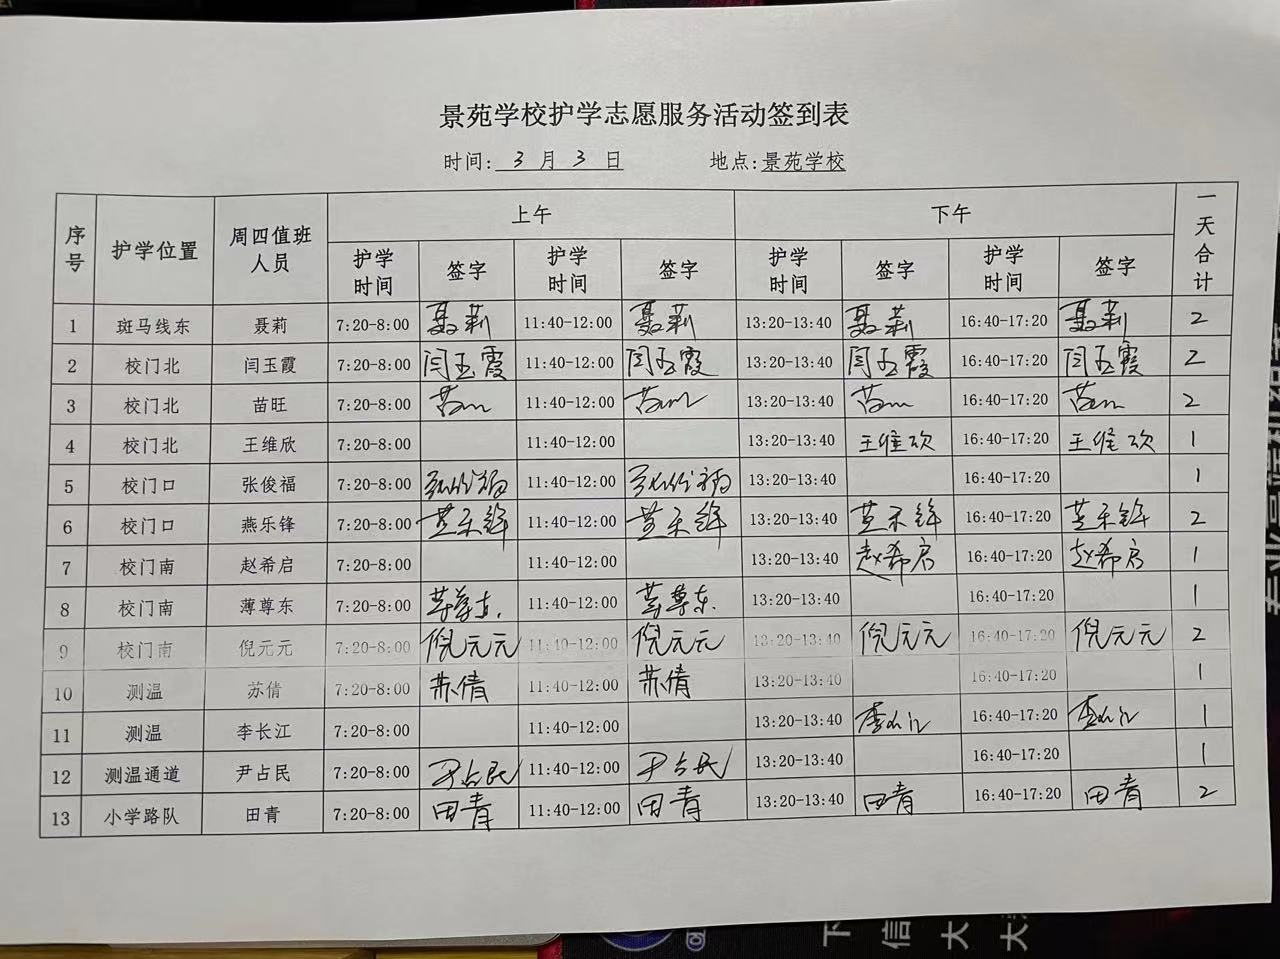 景苑学校护学志愿服务活动签到表
时间: 3 月 3 日 地点:景苑学校
序号 护学位置 周四值班人员 上午 下午 一天合计
护学时间 签字 护学时间 签字 护学时间 签字 护学时间 签字
1 斑马线东 聂莉 7:20-8:00 聂莉 11:40-12:00 聂莉 13:20-13:40 聂莉 16:40-17:20 聂莉 2
2 校门北 闫玉霞 7:20-8:00 闫玉霞 11:40-12:00 闫玉霞 13:20-13:40 闫玉霞 16:40-17:20 闫玉霞 2
3 校门北 苗旺 7:20-8:00 苗旺 11:40-12:00 苗旺 13:20-13:40 苗旺 16:40-17:20 苗旺 2
4 校门北 王维欣 7:20-8:00 11:40-12:00 13:20-13:40 王维欣 16:40-17:20 王维欣 1
5 校门口 张俊福 7:20-8:00 张俊福 11:40-12:00 张俊福 13:20-13:40 16:40-17:20 1
6 校门口 燕乐锋 7:20-8:00 燕乐锋 11:40-12:00 燕乐锋 13:20-13:40 燕乐锋 16:40-17:20 燕乐锋 2
7 校门南 赵希启 7:20-8:00 11:40-12:00 13:20-13:40 赵希启 16:40-17:20 赵希启 1
8 校门南 薄尊东 7:20-8:00 薄尊东 11:40-12:00 薄尊东 13:20-13:40 16:40-17:20 1
9 校门南 倪元元 7:20-8:00 倪元元 11:40-12:00 倪元元 13:20-13:40 倪元元 16:40-17:20 倪元元 2
10 测温 苏倩 7:20-8:00 苏倩 11:40-12:00 苏倩 13:20-13:40 16:40-17:20 1
11 测温 李长江 7:20-8:00 11:40-12:00 13:20-13:40 李长江 16:40-17:20 李长江 1
12 测温通道 尹占民 7:20-8:00 尹占民 11:40-12:00 尹占民 13:20-13:40 16:40-17:20 1
13 小学路队 田青 7:20-8:00 田青 11:40-12:00 田青 13:20-13:40 田青 16:40-17:20 田青 2
下 信 大 大